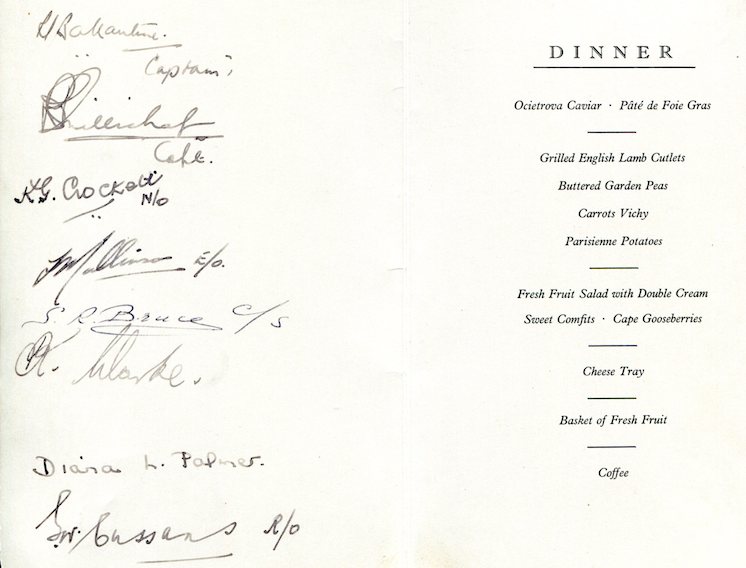 Ballantine.
Captain,
Capt.
K.G. Crockett
N/O
E/O.
S. R. Bruce C/S
K. Clarke.
Diana L. Palmer.
Cussans R/O
DINNER
Ocietrova Caviar · Pâté de Foie Gras
Grilled English Lamb Cutlets
Buttered Garden Peas
Carrots Vichy
Parisienne Potatoes
Fresh Fruit Salad with Double Cream
Sweet Comfits · Cape Gooseberries
Cheese Tray
Basket of Fresh Fruit
Coffee